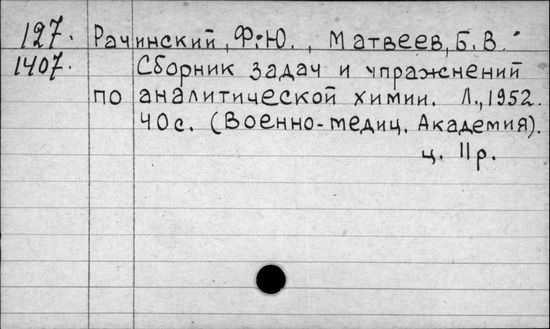 127. Рачинский, Ф.Ю., Матвеев, Б.В.
1407. Сборник задач и упражнений
по аналитической химии. Л., 1952.
40с. (Военно-медиц. Академия).
ц. 11р.